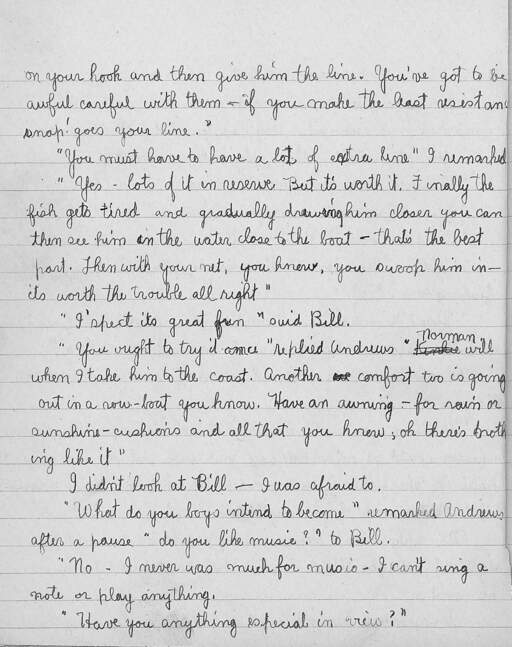 on your hook and then give him the line. You've got to be
awful careful with them – if you make the least resistan
snap! goes your line."
"You must have to have a lot of extra line" I remarked
"Yes – lots of it in reserve But it's worth it. Finally the
fish gets tired and gradually drawing him closer you can
then see him in the water close to the boat – that's the best
part. Then with your net, you know, you swoop him in –
its worth the trouble all right"
"I 'spect its great fun" said Bill.
"You ought to try it once" replied Andrews "Norman will
when I take him to the coast. Another comfort too is going
out in a row-boat you know. Have an awning – for rain or
sunshine – cushions and all that you know; oh there's noth
ing like it"
I didn't look at Bill – I was afraid to.
"What do you boys intend to become" remarked Andrews
after a pause "do you like music?" to Bill.
"No – I never was much for music – I can't sing a
note or play anything.
"Have you anything especial in view?"